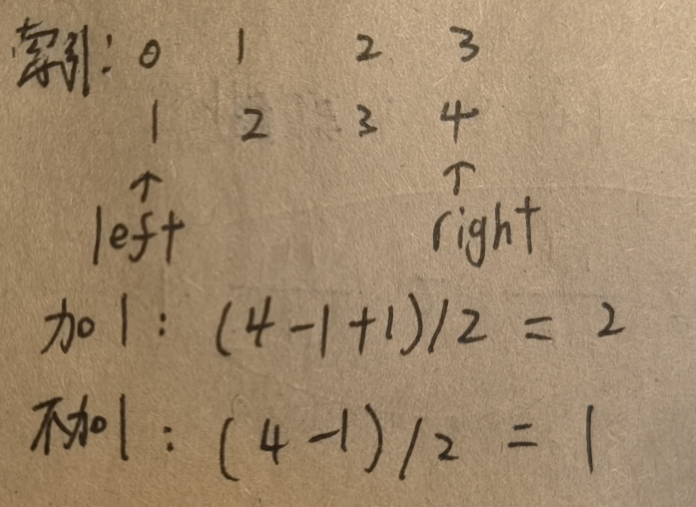 索引: 0 1 2 3
1 2 3 4
↑ ↑
left right
加1: (4-1+1)/2 = 2
不加1: (4-1)/2 = 1